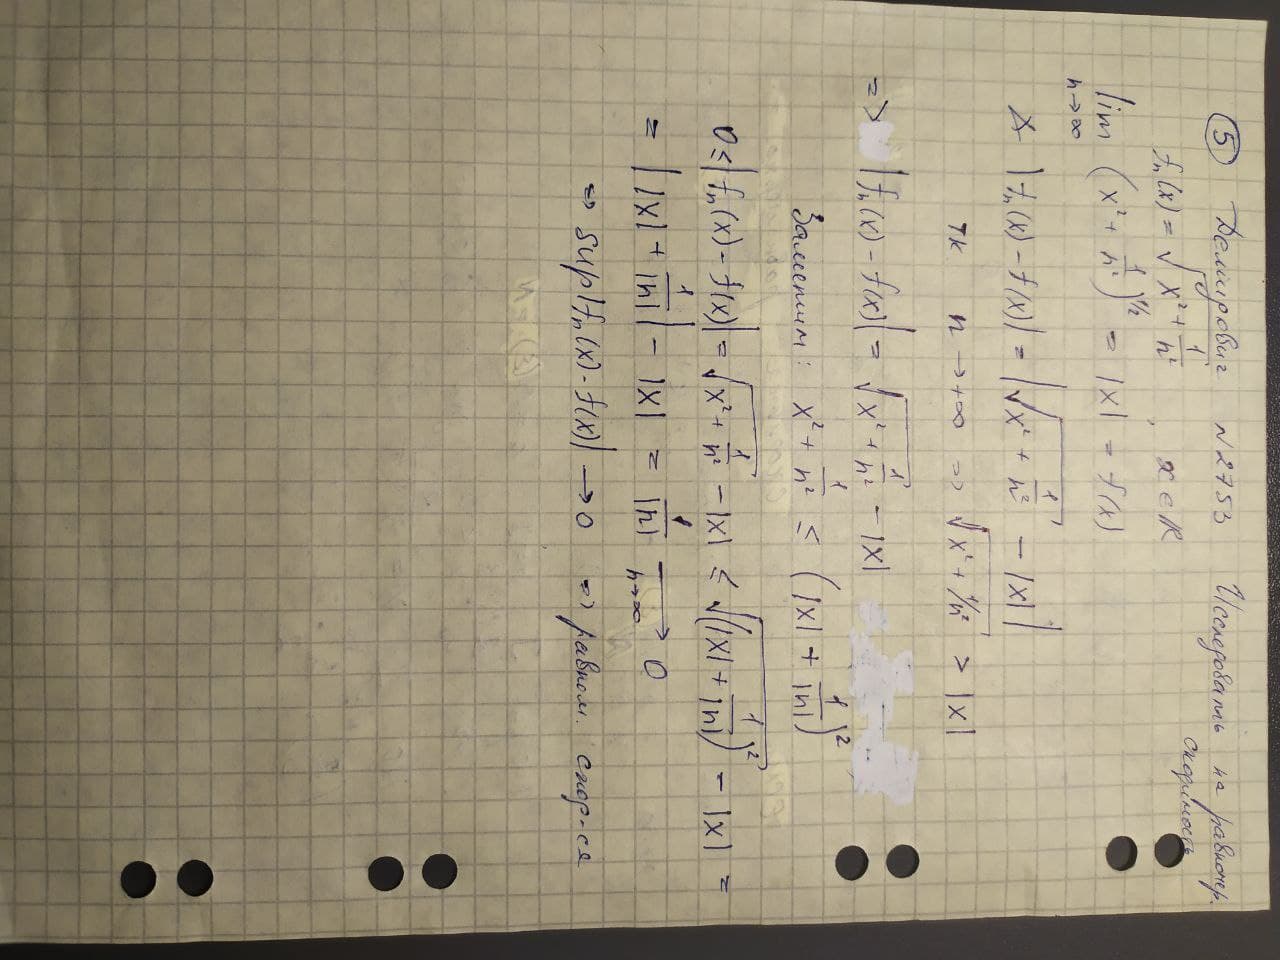 5 Демидович №2753 Исследовать на равномер.
сходимость
fₙ(x) = √(x² + 1/n²) , x ∈ ℝ
lim n→∞ (x² + 1/n²)^1/2 = |x| = f(x)
|fₙ(x) - f(x)| = |√(x² + 1/n²) - |x||
тк n → +∞ => √(x² + 1/n²) > |x|
=> |fₙ(x) - f(x)| = √(x² + 1/n²) - |x|
Заметим: x² + 1/n² ≤ (|x| + 1/|n|)²
0 ≤ |fₙ(x) - f(x)| = √(x² + 1/n²) - |x| ≤ √((|x| + 1/|n|)²) - |x| =
= ||x| + 1/|n|| - |x| = 1/|n| → n→∞ 0
=> sup|fₙ(x) - f(x)| → 0 => равном. сход-ся